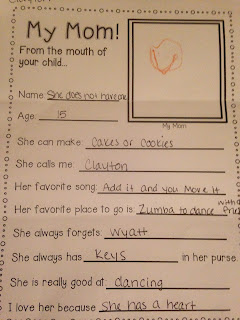 My Mom!
From the mouth of
your child...
Name: She does not have one
Age: 15
My Mom
She can make: Cakes or Cookies
She calls me: Clayton
Her favorite song: Add it and you Move it
with
Her favorite place to go is: Zumba to dance
She always forgets: Wyatt
She always has Keys in her purse.
She is really good at: dancing
I love her because She has a heart